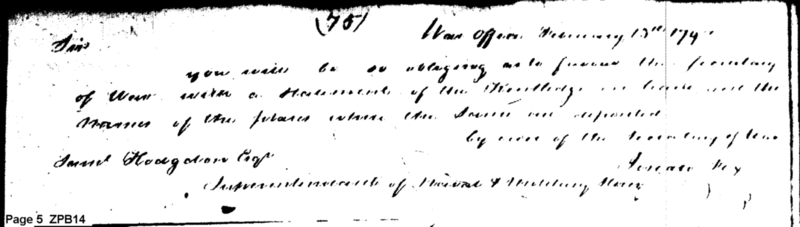 (75)
War Office February 13th 179
Sir
you will be so obliging as to favor the Secretary
of War with a Statement of the Kentledge on hand and the
Names of the places where the Same are deposited
by order of the Secretary of War
Saml Hodgdon Esqr
Superintendant of Naval & Military Stores
Page 5 ZPB14